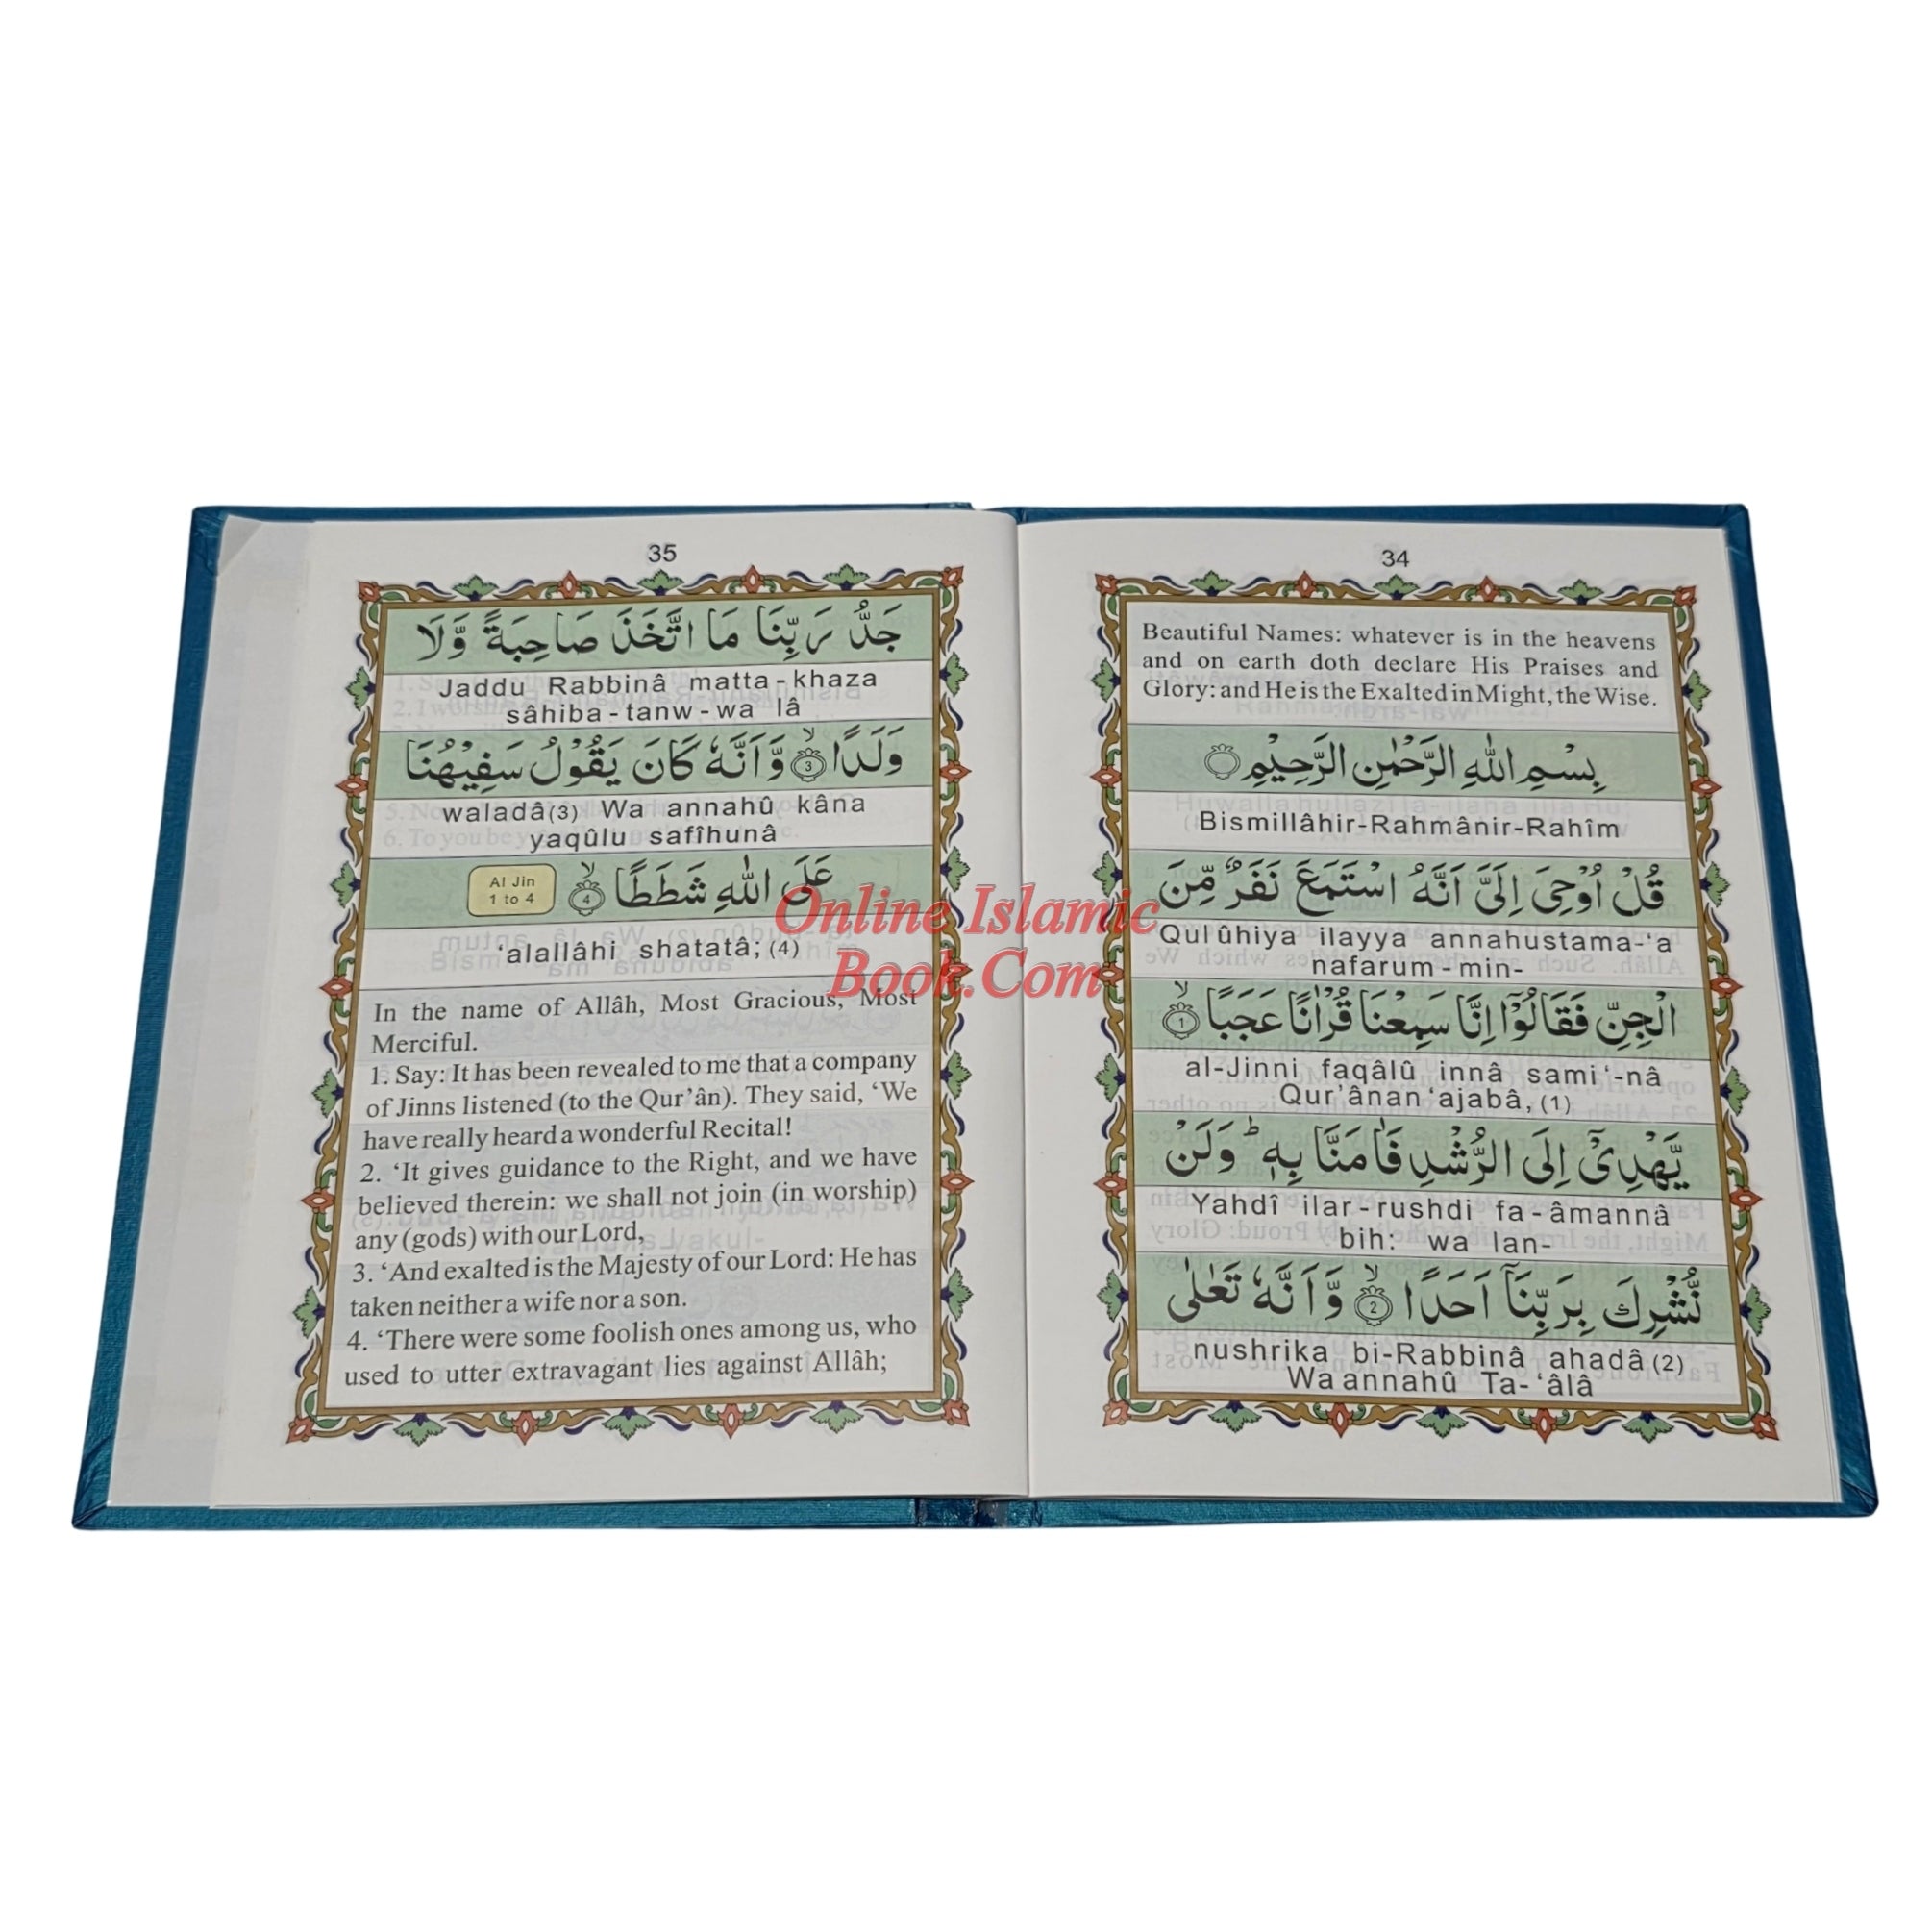 34
Beautiful Names: whatever is in the heavens
and on earth doth declare His Praises and
Glory: and He is the Exalted in Might, the Wise.
بِسْمِ اللّٰهِ الرَّحْمٰنِ الرَّحِيْمِ
Bismillâhir-Rahmânir-Rahîm
قُلْ اُوْحِيَ اِلَيَّ اَنَّهُ اسْتَمَعَ نَفَرٌ مِّنَ
Qul ûhiya ilayya annahustama-‘a
nafarum - min-
الْجِنِّ فَقَالُوْٓا اِنَّا سَمِعْنَا قُرْاٰنًا عَجَبًا ۙ 1
al-Jinni faqâlû innâ sami‘-nâ
Qur’ânan ‘ajabâ, (1)
يَّهْدِيْٓ اِلَى الرُّشْدِ فَاٰمَنَّا بِهٖ ؕ وَلَنْ
Yahdî ilar - rushdi fa - âmannâ
bih: wa lan-
نُّشْرِكَ بِرَبِّنَآ اَحَدًا ۙ 2 وَّاَنَّهٗ تَعٰلٰى
nushrika bi-Rabbinâ ahadâ (2)
Wa annahû Ta- ‘âlâ
35
جَدُّ رَبِّنَا مَا اتَّخَذَ صَاحِبَةً وَّلَا
Jaddu Rabbinâ matta - khaza
sâhiba - tanw - wa lâ
وَلَدًا ۙ 3 وَّاَنَّهٗ كَانَ يَقُوْلُ سَفِيْهُنَا
waladâ(3) Wa annahû kâna
yaqûlu safîhunâ
عَلَى اللّٰهِ شَطَطًا ۙ 4
Al Jin
1 to 4
‘alallâhi shatatâ; (4)
In the name of Allâh, Most Gracious, Most
Merciful.
1. Say: It has been revealed to me that a company
of Jinns listened (to the Qur’ân). They said, ‘We
have really heard a wonderful Recital!
2. ‘It gives guidance to the Right, and we have
believed therein: we shall not join (in worship)
any (gods) with our Lord,
3. ‘And exalted is the Majesty of our Lord: He has
taken neither a wife nor a son.
4. ‘There were some foolish ones among us, who
used to utter extravagant lies against Allâh;
Online Islamic
Book.Com